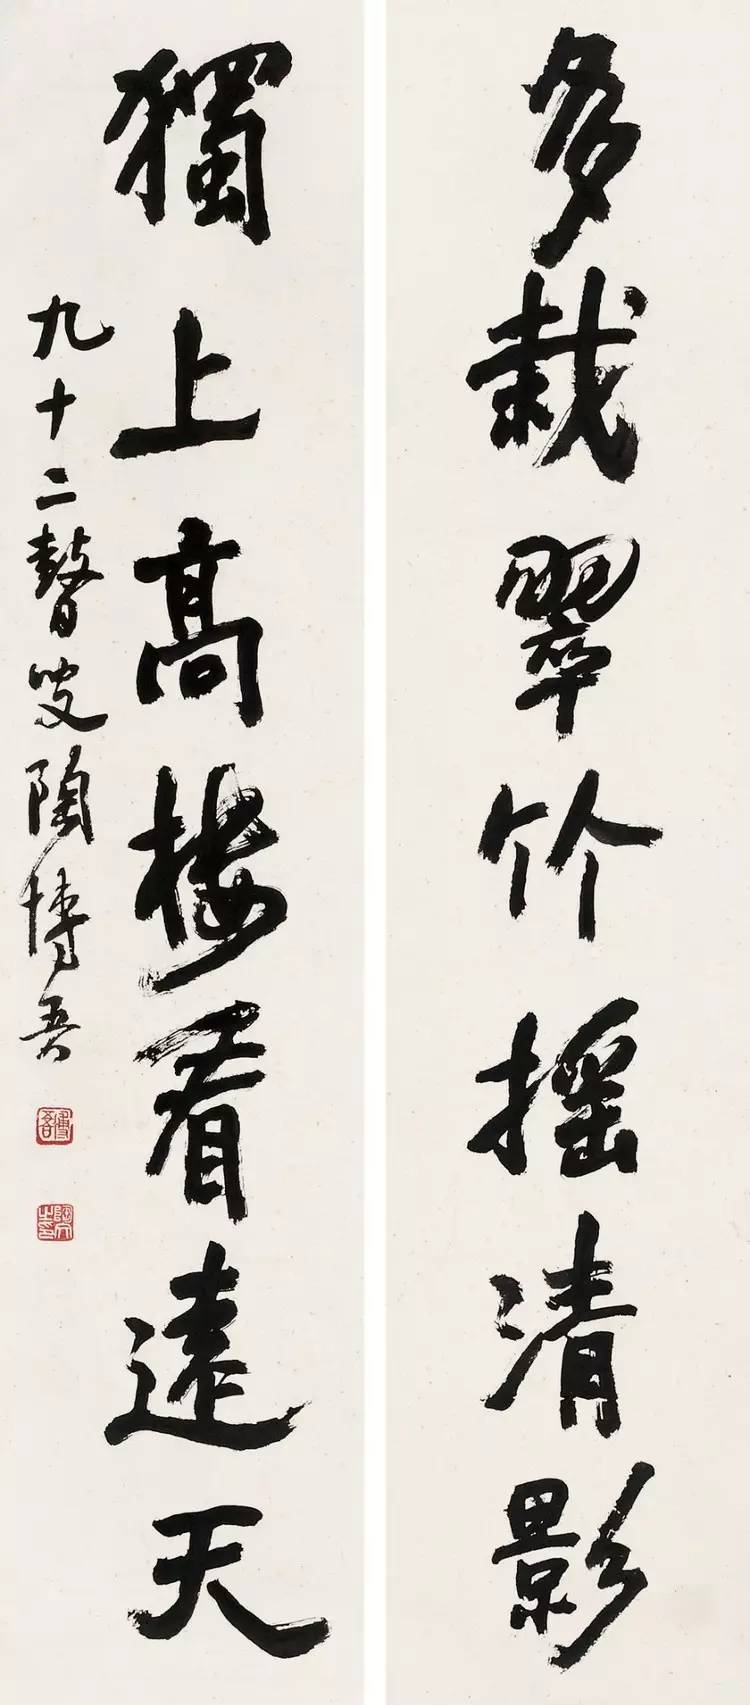 多栽翠竹摇清影
獨上高楼看遠天
九十二瞽叟陶博吾
博吾